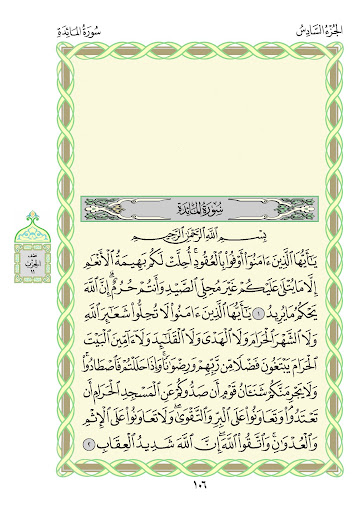 الجُزْءُ السَّادِسُ
سُورَةُ المَائِدَةِ
سُورَةُ المَائِدَةِ
بِسْمِ ٱللَّهِ ٱلرَّحْمَٰنِ ٱلرَّحِيمِ
يَٰٓأَيُّهَا ٱلَّذِينَ ءَامَنُوٓاْ أَوْفُواْ بِٱلْعُقُودِۚ أُحِلَّتْ لَكُم بَهِيمَةُ ٱلْأَنْعَٰمِ
إِلَّا مَا يُتْلَىٰ عَلَيْكُمْ غَيْرَ مُحِلِّي ٱلصَّيْدِ وَأَنتُمْ حُرُمٌۗ إِنَّ ٱللَّهَ
يَحْكُمُ مَا يُرِيدُ ١ يَٰٓأَيُّهَا ٱلَّذِينَ ءَامَنُواْ لَا تُحِلُّواْ شَعَٰٓئِرَ ٱللَّهِ
وَلَا ٱلشَّهْرَ ٱلْحَرَامَ وَلَا ٱلْهَدْيَ وَلَا ٱلْقَلَٰٓئِدَ وَلَآ ءَآمِّينَ ٱلْبَيْتَ
ٱلْحَرَامَ يَبْتَغُونَ فَضْلًا مِّن رَّبِّهِمْ وَرِضْوَٰنًاۚ وَإِذَا حَلَلْتُمْ فَٱصْطَادُواْۚ
وَلَا يَجْرِمَنَّكُمْ شَنَـَٔانُ قَوْمٍ أَن صَدُّوكُمْ عَنِ ٱلْمَسْجِدِ ٱلْحَرَامِ أَن
تَعْتَدُواْۘ وَتَعَاوَنُواْ عَلَى ٱلْبِرِّ وَٱلتَّقْوَىٰۖ وَلَا تَعَاوَنُواْ عَلَى ٱلْإِثْمِ
وَٱلْعُدْوَٰنِۚ وَٱتَّقُواْ ٱللَّهَۖ إِنَّ ٱللَّهَ شَدِيدُ ٱلْعِقَابِ ٢
نصف
الحزب
١١
١٠٦